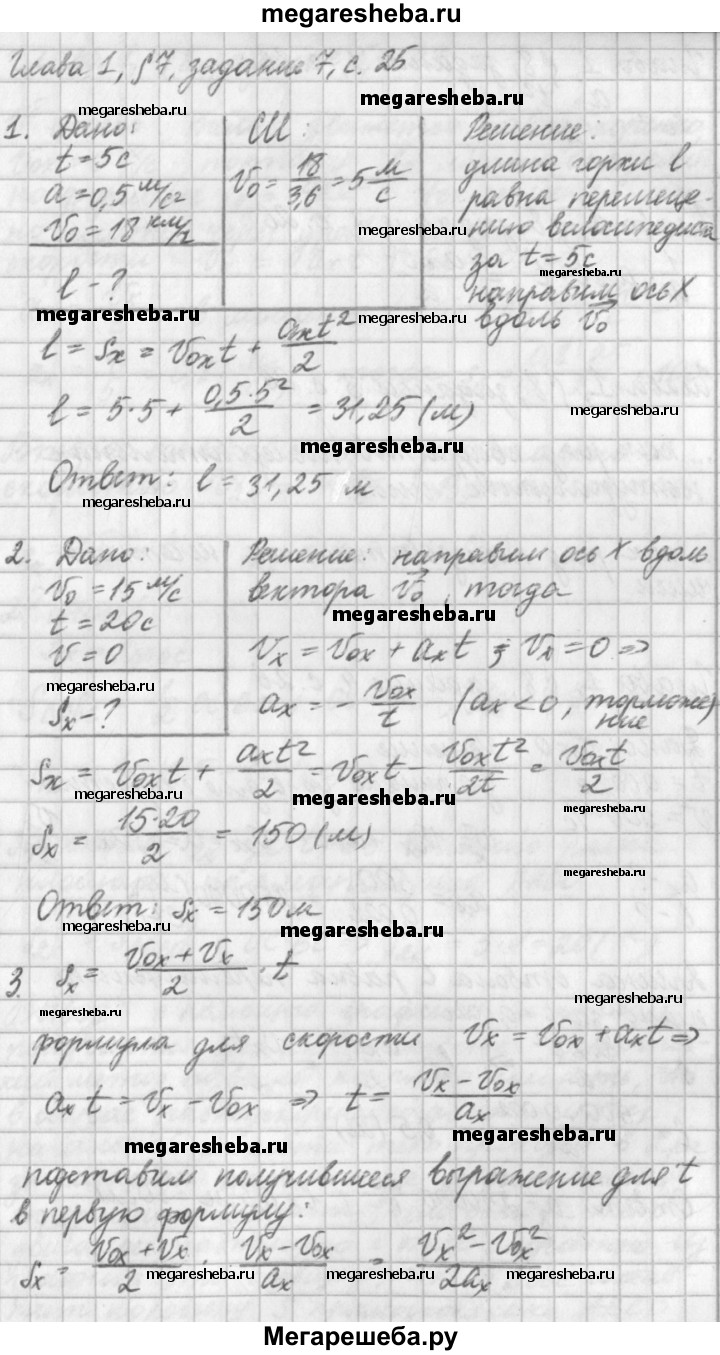 megaresheba.ru
Глава 1, §7, задание 7, с. 25
megaresheba.ru
megaresheba.ru
1. Дано: СИ: Решение:
t = 5с v₀ = 18/3,6 = 5 м/с длина горки l
a = 0,5 м/с² равна перемеще-
v₀ = 18 км/ч нию велосипедиста
megaresheba.ru
за t = 5с
megaresheba.ru
l - ? направим ось X
megaresheba.ru megaresheba.ru вдоль v₀
l = sₓ = v₀ₓt + aₓt²/2
l = 5·5 + 0,5·5²/2 = 31,25 (м)
megaresheba.ru
megaresheba.ru
Ответ: l = 31,25 м
megaresheba.ru
2. Дано: Решение: направим ось X вдоль
v₀ = 15 м/с вектора v₀, тогда
megaresheba.ru
t = 20с
v = 0 vₓ = v₀ₓ + aₓt ; vₓ = 0 ⇒
megaresheba.ru
sₓ - ? aₓ = - v₀ₓ/t (aₓ < 0, торможе)
ние
sₓ = v₀ₓt + aₓt²/2 = v₀ₓt - v₀ₓt²/2t = v₀ₓt/2
megaresheba.ru megaresheba.ru
megaresheba.ru
sₓ = 15·20/2 = 150 (м)
megaresheba.ru
Ответ: sₓ = 150 м
megaresheba.ru
3. sₓ = v₀ₓ + vₓ/2 · t
megaresheba.ru
megaresheba.ru
формула для скорости vₓ = v₀ₓ + aₓt ⇒
aₓt = vₓ - v₀ₓ ⇒ t = vₓ - v₀ₓ/aₓ
megaresheba.ru megaresheba.ru
подставим получившееся выражение для t
в первую формулу:
sₓ = v₀ₓ + vₓ/2 · vₓ - v₀ₓ/aₓ = vₓ² - v₀ₓ²/2aₓ
megaresheba.ru megaresheba.ru megaresheba.ru
Мегарешеба.ру